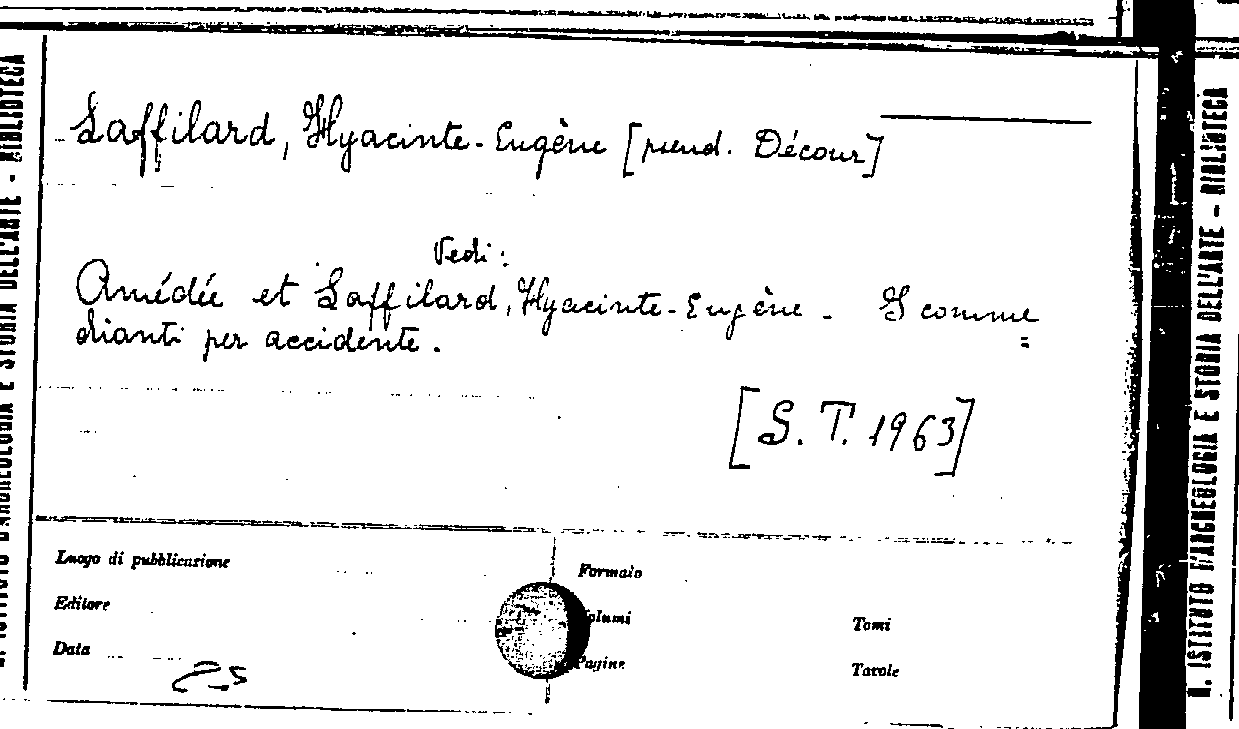 Laffilard, Hyacinte-Eugène [pseud. Décour]
Vedi:
Amédée et Laffilard, Hyacinte-Eugène - I comme
dianti per accidente.
[S. T. 1963]
Luogo di pubblicazione
Formato
Editore
Volumi
Tomi
Data
Pagine
Tavole
N. ISTITUTO D'ARCHEOLOGIA E STORIA DELL'ARTE - BIBLIOTECA
ISTITUTO D'ARCHEOLOGIA E STORIA DELL'ARTE - BIBLIOTECA